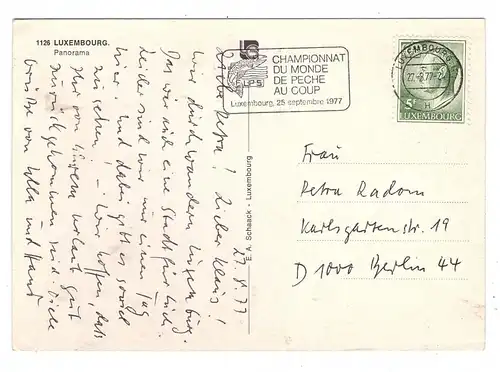 1126 LUXEMBOURG.
Panorama
FLPS
CHAMPIONNAT
DU MONDE
DE PECHE
AU COUP
Luxembourg, 25 septembre 1977
LUXEMBOURG
H
5F
LUXEMBOURG
E. A. Schaack - Luxembourg
23.8.77
Liebe Petra! Lieber Klaus!
wir durchwandern Luxemburg.
Das wäre auch eine Stadt für Euch.
leider sind wir nur einen Tag
hier. Und dabei gibt es soviel
zu sehen! - Wir hoffen, daß
Ihr von Eurem Urlaub gut
zurückgekommen seid. Viele
Grüße von und
Frau
Petra Radom
Karlsgartenstr. 19
D 1000 Berlin 44